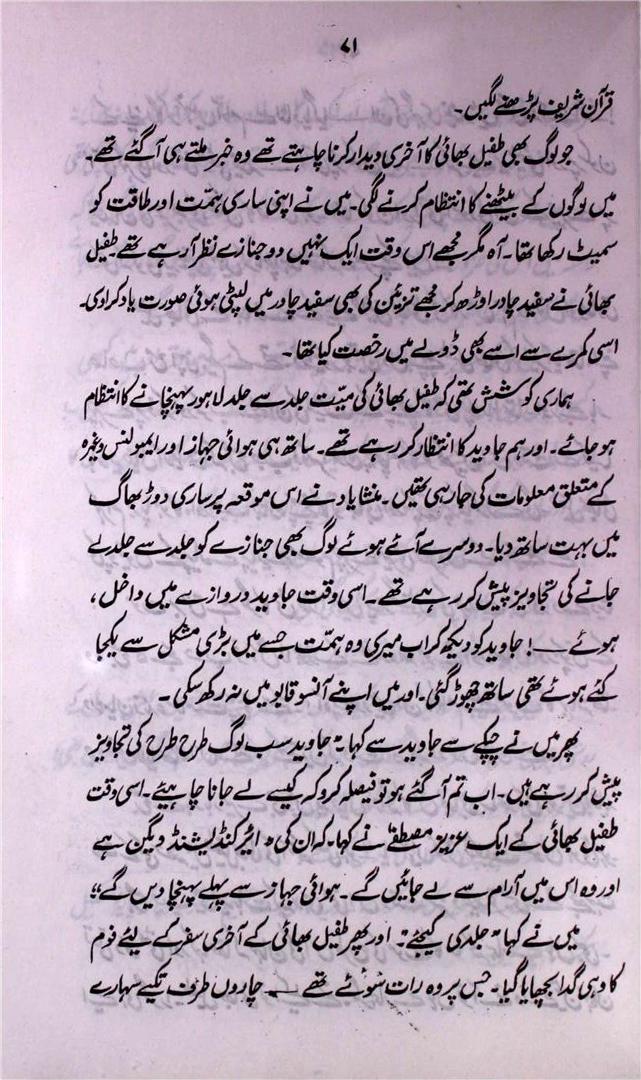 ۷۱
قرآن شریف پڑھنے لگیں۔
جو لوگ بھی طفیل بھائی کا آخری دیدار کرنا چاہتے تھے وہ خبر ملتے ہی آ گئے تھے۔
میں لوگوں کے بیٹھنے کا انتظام کرنے لگی۔ میں نے اپنی ساری ہمّت اور طاقت کو
سمیٹ رکھا تھا۔ آہ مگر مجھے اس وقت ایک نہیں دو جنازے نظر آ رہے تھے۔ طفیل
بھائی نے سفید چادر اوڑھ کر مجھے تزئین کی بھی سفید چادر میں لپٹی ہوئی صورت یاد کرا دی۔
اسی کمرے سے اسے بھی ڈولے میں رخصت کیا تھا۔
ہماری کوشش تھی کہ طفیل بھائی کی میّت جلد سے جلد لاہور پہنچانے کا انتظام
ہو جائے۔ اور ہم جاوید کا انتظار کر رہے تھے۔ ساتھ ہی ہوائی جہاز اور ایمبولنس وغیرہ
کے متعلق معلومات کی جا رہی تھیں۔ منشا یاد نے اس موقعہ پر ساری دوڑ بھاگ
میں بہت ساتھ دیا۔ دوسرے آئے ہوئے لوگ بھی جنازے کو جلد سے جلد لے
جانے کی تجاویز پیش کر رہے تھے۔ اسی وقت جاوید دروازے میں داخل،
ہوئے ــــ! جاوید کو دیکھ کر اب میری وہ ہمّت جسے میں بڑی مشکل سے یکجا
کئے ہوئے تھی ساتھ چھوڑ گئی۔ اور میں اپنے آنسو قابو میں نہ رکھ سکی۔
پھر میں نے چپکے سے جاوید سے کہا " جاوید سب لوگ طرح طرح کی تجاویز
پیش کر رہے ہیں۔ اب تم آ گئے ہو تو فیصلہ کرو کہ کیسے لے جانا چاہیئے۔ اسی وقت
طفیل بھائی کے ایک عزیز مصطفٰے نے کہا۔ کہ ان کی ' ایئر کنڈیشنڈ ویگن ہے
اور وہ اس میں آرام سے لے جائیں گے۔ ہوائی جہاز سے پہلے پہنچا دیں گے"
میں نے کہا " جلدی کیجئے"۔ اور پھر طفیل بھائی کے آخری سفر کے لیئے فوم
کا وہی گدا بچھایا گیا۔ جس پر وہ رات سوئے تھے ــــ چاروں طرف تکیے سہارے